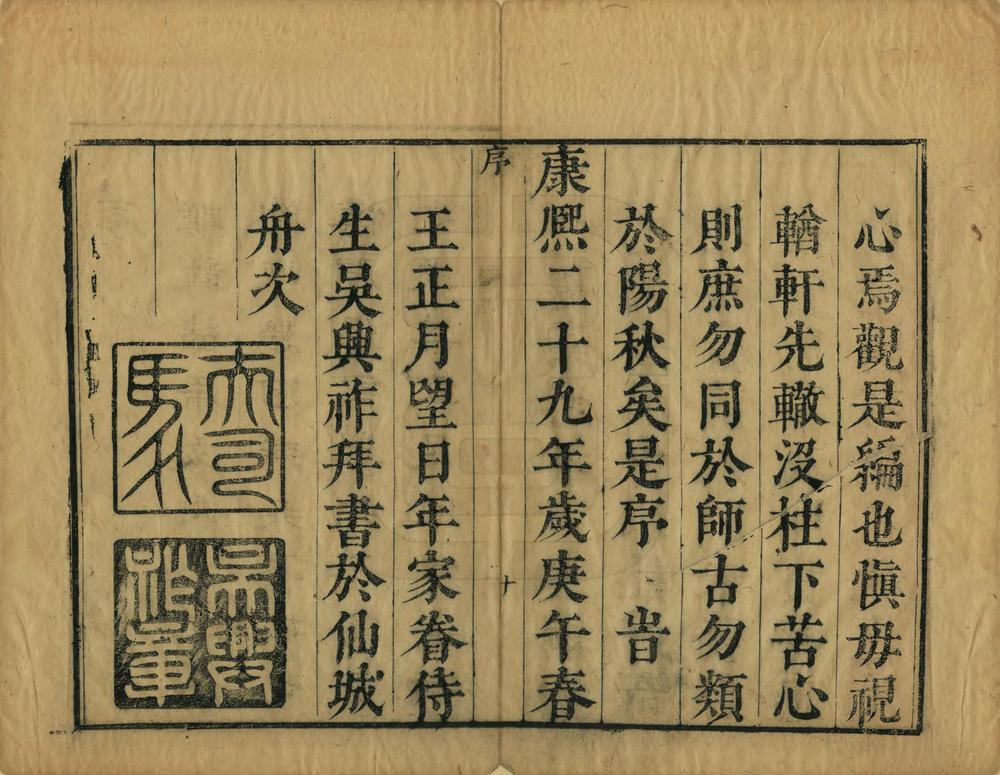 心焉觀是編也愼毋視
輶軒先轍沒柱下苦心
則庶勿同於師古勿類
於陽秋矣是序　旹
康熙二十九年歲庚午春
序
十
王正月望日年家眷侍
生吳興祚拜書於仙城
舟次
大司馬
吳興祚章